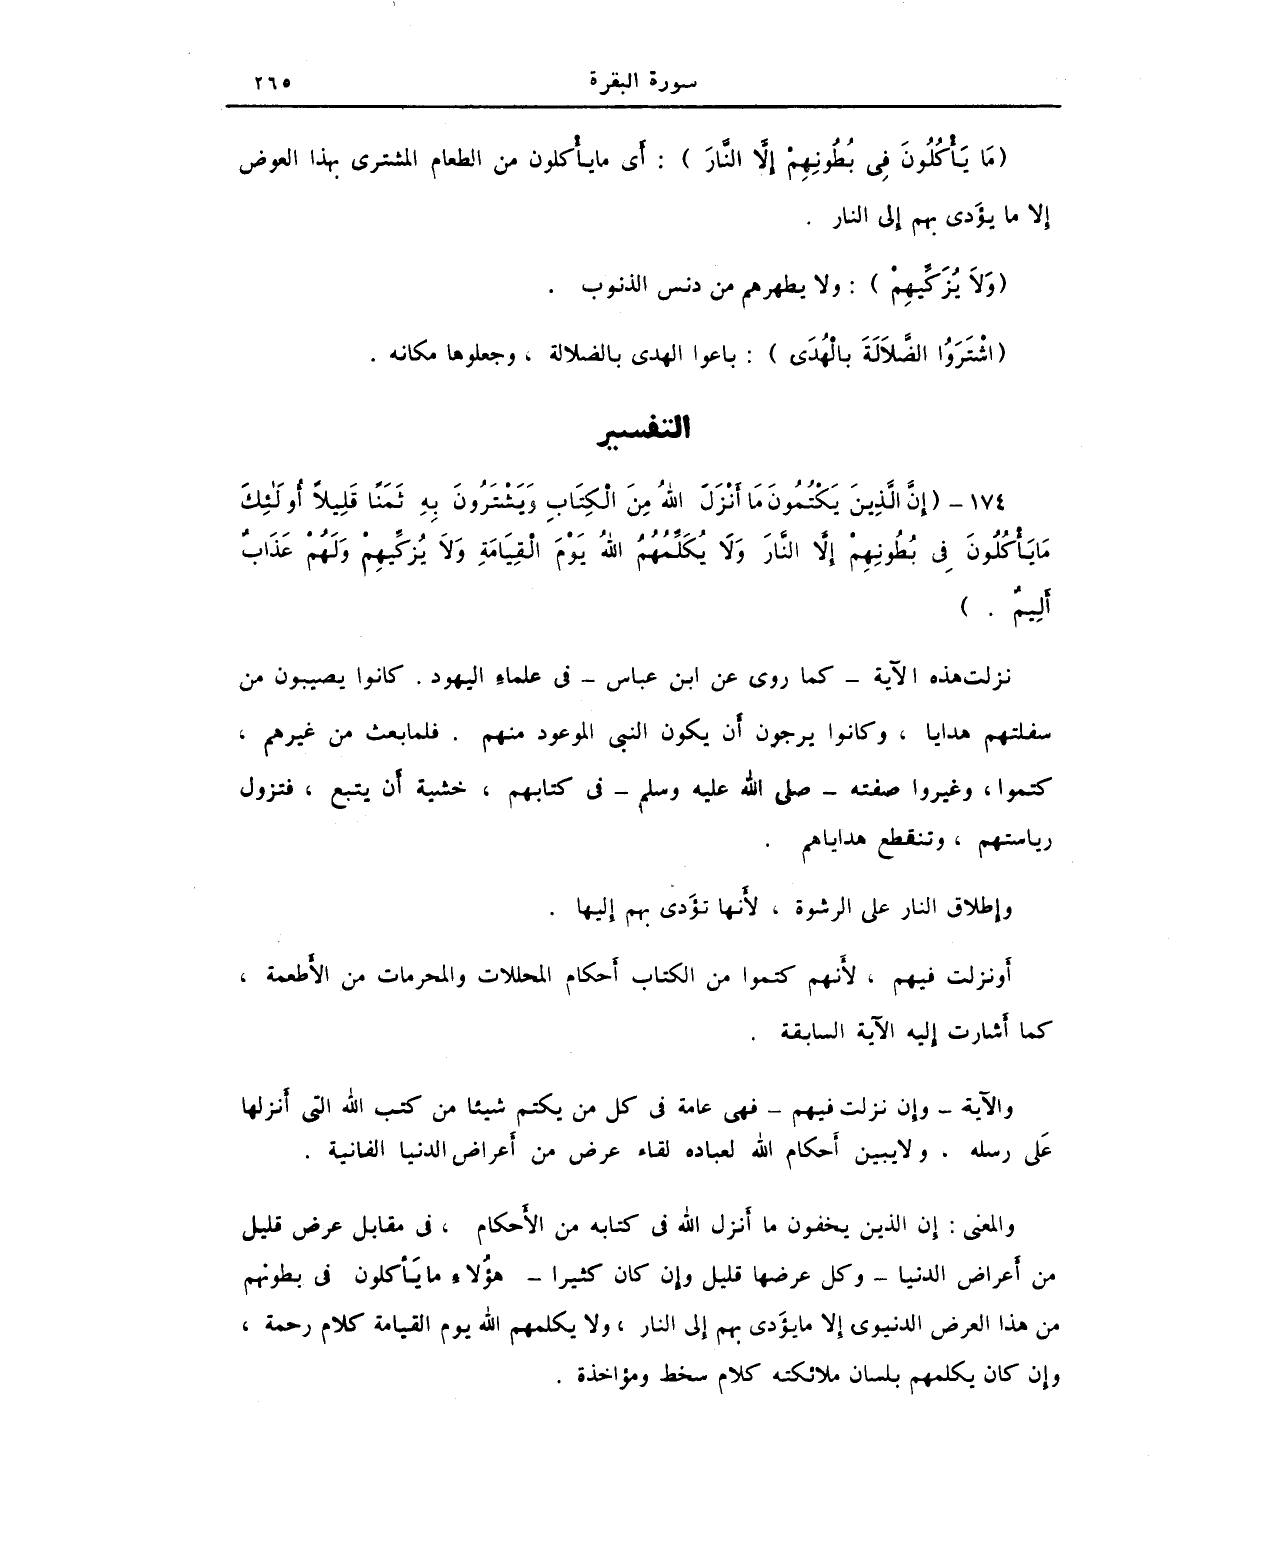 سورة البقرة ٢٦٥
(مَا يَأْكُلُونَ فِى بُطُونِهِمْ إِلَّا النَّارَ ) : أَى مايأْكلون من الطعام المشترى بهذا العوض
إلا ما يؤَدى بهم إلى النار .
(وَلاَ يُزَكِّيهِمْ ) : ولا يطهرهم من دنس الذنوب .
(اشْتَرَوُا الضَّلاَلَةَ بِالْهُدَى ) : باعوا الهدى بالضلالة ، وجعلوها مكانه .
التفسير
١٧٤ – (إِنَّ الَّذِينَ يَكْتُمُونَ مَا أَنْزَلَ اللهُ مِنَ الْكِتَابِ وَيَشْتَرُونَ بِهِ ثَمَنًا قَلِيلاً أُولَئِكَ
مَايَأْكُلُونَ فِى بُطُونِهِمْ إِلَّا النَّارَ وَلَا يُكَلِّمُهُمُ اللهُ يَوْمَ الْقِيَامَةِ وَلاَ يُزكِّيهِمْ وَلَهُمْ عَذَابٌ
أَلِيمٌ . )
نزلت هذه الآية – كما روى عن ابن عباس – فى علماءِ اليهود . كانوا يصيبون من
سفلتهم هدايا ، وكانوا يرجون أَن يكون النبى الموعود منهم . فلمابعث من غيرهم ،
كتموا، وغيروا صفته – صلى الله عليه وسلم – فى كتابهم ، خشية أَن يتبع ، فتزول
رياستهم ، وتنقطع هداياهم .
وإطلاق النار على الرشوة ، لأَنها تؤَدى بهم إليها .
أَونزلت فيهم ، لأَنهم كتموا من الكتاب أَحكام المحللات والمحرمات من الأَطعمة ،
كما أَشارت إليه الآية السابقة .
والآية – وإن نزلت فيهم – فهى عامة فى كل من يكتم شيئا من كتب الله التى أَنزلها
عَلى رسله . ولايبين أَحكام الله لعباده لقاء عرض من أَعراض الدنيا الفانية .
والمعنى : إن الذين يخفون ما أَنزل الله فى كتابه من الأَحكام ، فى مقابل عرض قليل
من أَعراض الدنيا – وكل عرضها قليل وإن كان كثيرا – هؤُلاء مايَأْكلون فى بطونهم
من هذا العرض الدنيوى إلا مايؤَدى بهم إلى النار ، ولا يكلمهم الله يوم القيامة كلام رحمة ،
وإن كان يكلمهم بلسان ملائكته كلام سخط ومؤاخذة .